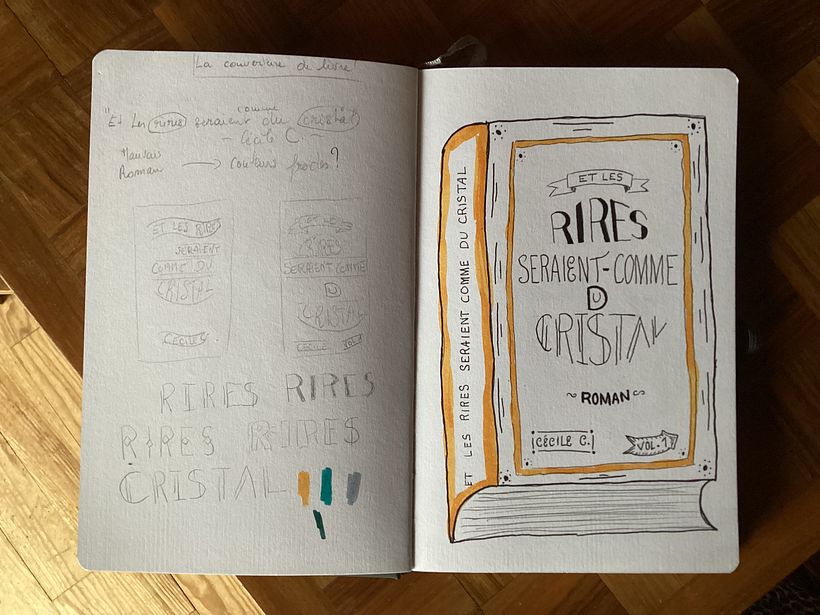 La couverture de livre
"Et les rires seraient comme du cristal"
Cécile C.
Mauvais
Roman → couleurs froides?
ET LES RIRES
SERAIENT
COMME DU
CRISTAL
CÉCILE C.
ET LES
RIRES
SERAIENT COMME
DU
CRISTAL
CÉCILE VOL.1
RIRES RIRES
RIRES RIRES
CRISTAL
ET LES RIRES SERAIENT COMME DU CRISTAL
ET LES
RIRES
SERAIENT-COMME
DU
CRISTAL
~ROMAN~
CÉCILE C.
VOL.1